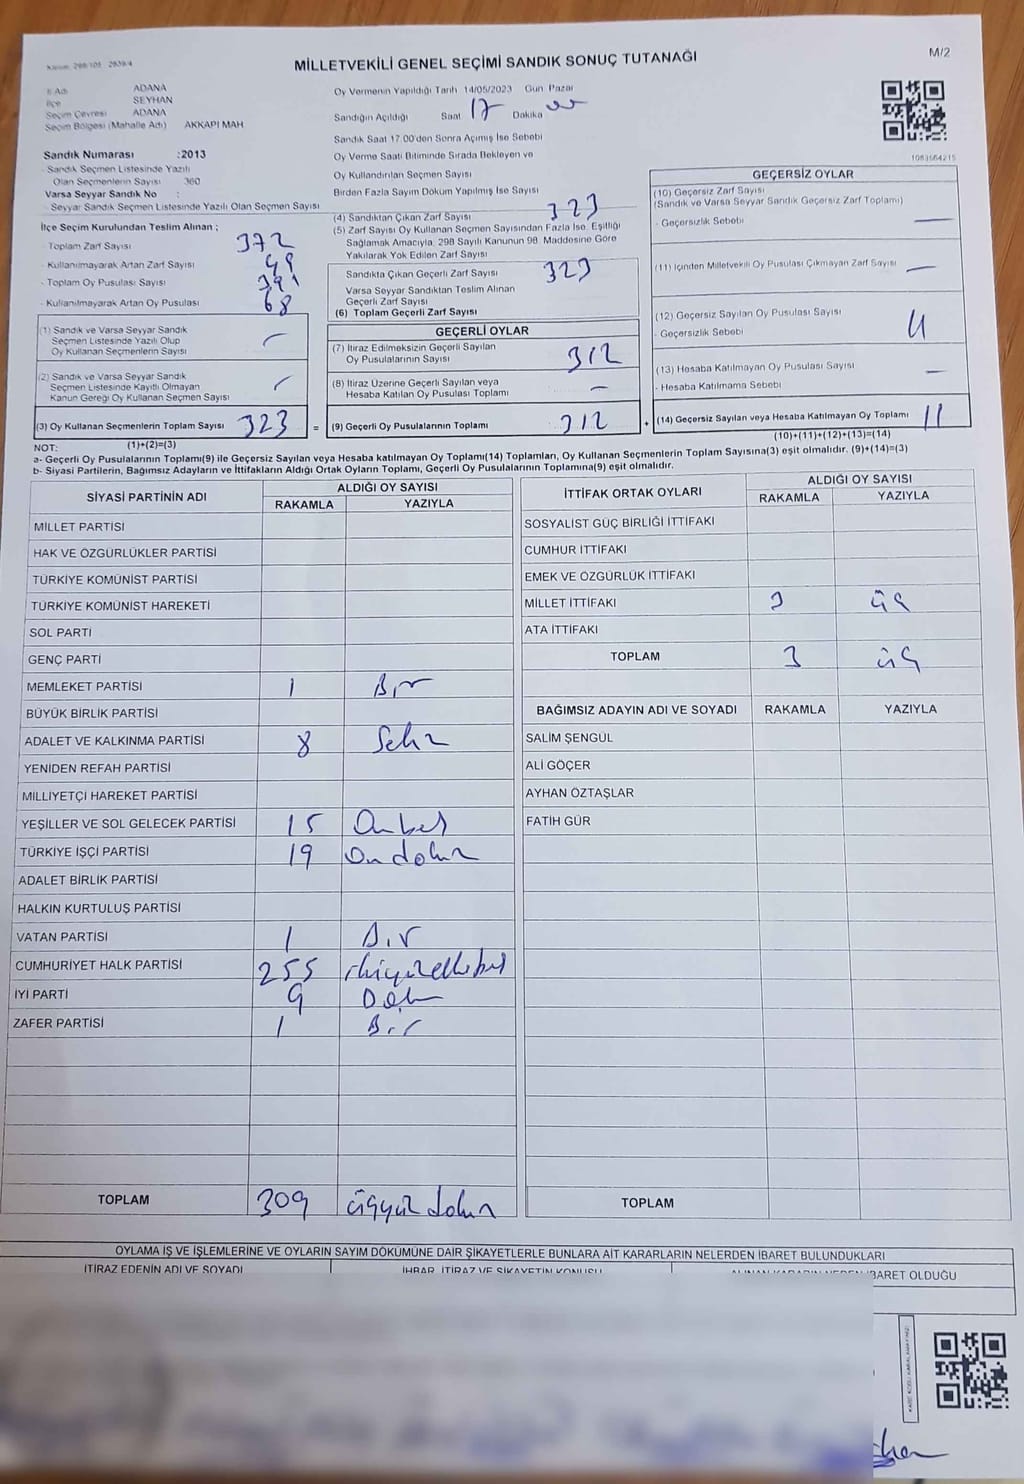 M/2
MİLLETVEKİLİ GENEL SEÇİMİ SANDIK SONUÇ TUTANAĞI
İl Adı ADANA
İlçe SEYHAN
Seçim Çevresi ADANA
Seçim Bölgesi (Mahalle Adı) AKKAPI MAH
Sandık Numarası :2013
- Sandık Seçmen Listesinde Yazılı
Olan Seçmenlerin Sayısı 360
Varsa Seyyar Sandık No :
- Seyyar Sandık Seçmen Listesinde Yazılı Olan Seçmen Sayısı
İlçe Seçim Kurulundan Teslim Alınan ;
- Toplam Zarf Sayısı 372
- Kullanılmayarak Artan Zarf Sayısı 49
- Toplam Oy Pusulası Sayısı 391
- Kullanılmayarak Artan Oy Pusulası 68
(1) Sandık ve Varsa Seyyar Sandık
Seçmen Listesinde Yazılı Olup
Oy Kullanan Seçmenlerin Sayısı –
(2) Sandık ve Varsa Seyyar Sandık
Seçmen Listesinde Kayıtlı Olmayan
Kanun Gereği Oy Kullanan Seçmen Sayısı –
(3) Oy Kullanan Seçmenlerin Toplam Sayısı 323 =
(1)+(2)=(3)
Oy Vermenin Yapıldığı Tarih 14/05/2023 Gün Pazar
Sandığın Açıldığı Saat 17 Dakika 00
Sandık Saat 17.00'den Sonra Açımış İse Sebebi
Oy Verme Saati Bitiminde Sırada Bekleyen ve
Oy Kullandırılan Seçmen Sayısı
Birden Fazla Sayım Döküm Yapılmış İse Sayısı
(4) Sandıktan Çıkan Zarf Sayısı 323
(5) Zarf Sayısı Oy Kullanan Seçmen Sayısından Fazla İse, Eşitliği
Sağlamak Amacıyla, 298 Sayılı Kanunun 98. Maddesine Göre
Yakılarak Yok Edilen Zarf Sayısı
Sandıkta Çıkan Geçerli Zarf Sayısı 323
Varsa Seyyar Sandıktan Teslim Alınan
Geçerli Zarf Sayısı
(6) Toplam Geçerli Zarf Sayısı
GEÇERLİ OYLAR
(7) İtiraz Edilmeksizin Geçerli Sayılan
Oy Pusulalarının Sayısı 312
(8) İtiraz Üzerine Geçerli Sayılan veya
Hesaba Katılan Oy Pusulası Toplamı –
(9) Geçerli Oy Pusulalarının Toplamı 312 +
1083564215
GEÇERSİZ OYLAR
(10) Geçersiz Zarf Sayısı
(Sandık ve Varsa Seyyar Sandık Geçersiz Zarf Toplamı)
- Geçersizlik Sebebi —
(11) İçinden Milletvekili Oy Pusulası Çıkmayan Zarf Sayısı —
(12) Geçersiz Sayılan Oy Pusulası Sayısı 11
- Geçersizlik Sebebi
(13) Hesaba Katılmayan Oy Pusulası Sayısı –
- Hesaba Katılmama Sebebi
(14) Geçersiz Sayılan veya Hesaba Katılmayan Oy Toplamı 11
(10)+(11)+(12)+(13)=(14)
NOT:
a- Geçerli Oy Pusulalarının Toplamı(9) ile Geçersiz Sayılan veya Hesaba katılmayan Oy Toplamı(14) Toplamları, Oy Kullanan Seçmenlerin Toplam Sayısına(3) eşit olmalıdır. (9)+(14)=(3)
b- Siyasi Partilerin, Bağımsız Adayların ve İttifakların Aldığı Ortak Oyların Toplamı, Geçerli Oy Pusulalarının Toplamına(9) eşit olmalıdır.
SİYASİ PARTİNİN ADI ALDIĞI OY SAYISI
RAKAMLA YAZIYLA
MİLLET PARTİSİ
HAK VE ÖZGÜRLÜKLER PARTİSİ
TÜRKİYE KOMÜNİST PARTİSİ
TÜRKİYE KOMÜNİST HAREKETİ
SOL PARTİ
GENÇ PARTİ
MEMLEKET PARTİSİ 1 Bir
BÜYÜK BİRLİK PARTİSİ
ADALET VE KALKINMA PARTİSİ 8 Sekiz
YENİDEN REFAH PARTİSİ
MİLLİYETÇİ HAREKET PARTİSİ
YEŞİLLER VE SOL GELECEK PARTİSİ 15 Onbeş
TÜRKİYE İŞÇİ PARTİSİ 19 On dokuz
ADALET BİRLİK PARTİSİ
HALKIN KURTULUŞ PARTİSİ
VATAN PARTİSİ 1 Bir
CUMHURİYET HALK PARTİSİ 255 ikiyüzellibeş
İYİ PARTİ 9 Dokuz
ZAFER PARTİSİ 1 Bir
TOPLAM 309 üçyüz dokuz
İTTİFAK ORTAK OYLARI ALDIĞI OY SAYISI
RAKAMLA YAZIYLA
SOSYALİST GÜÇ BİRLİĞİ İTTİFAKI
CUMHUR İTTİFAKI
EMEK VE ÖZGÜRLÜK İTTİFAKI
MİLLET İTTİFAKI 3 üç
ATA İTTİFAKI
TOPLAM 3 üç
BAĞIMSIZ ADAYIN ADI VE SOYADI RAKAMLA YAZIYLA
SALİM ŞENGÜL
ALİ GÖÇER
AYHAN ÖZTAŞLAR
FATİH GÜR
TOPLAM
OYLAMA İŞ VE İŞLEMLERİNE VE OYLARIN SAYIM DÖKÜMÜNE DAİR ŞİKAYETLERLE BUNLARA AİT KARARLARIN NELERDEN İBARET BULUNDUKLARI
İTİRAZ EDENİN ADI VE SOYADI İHBAR, İTİRAZ VE ŞİKAYETİN KONUSU BARET OLDUĞU